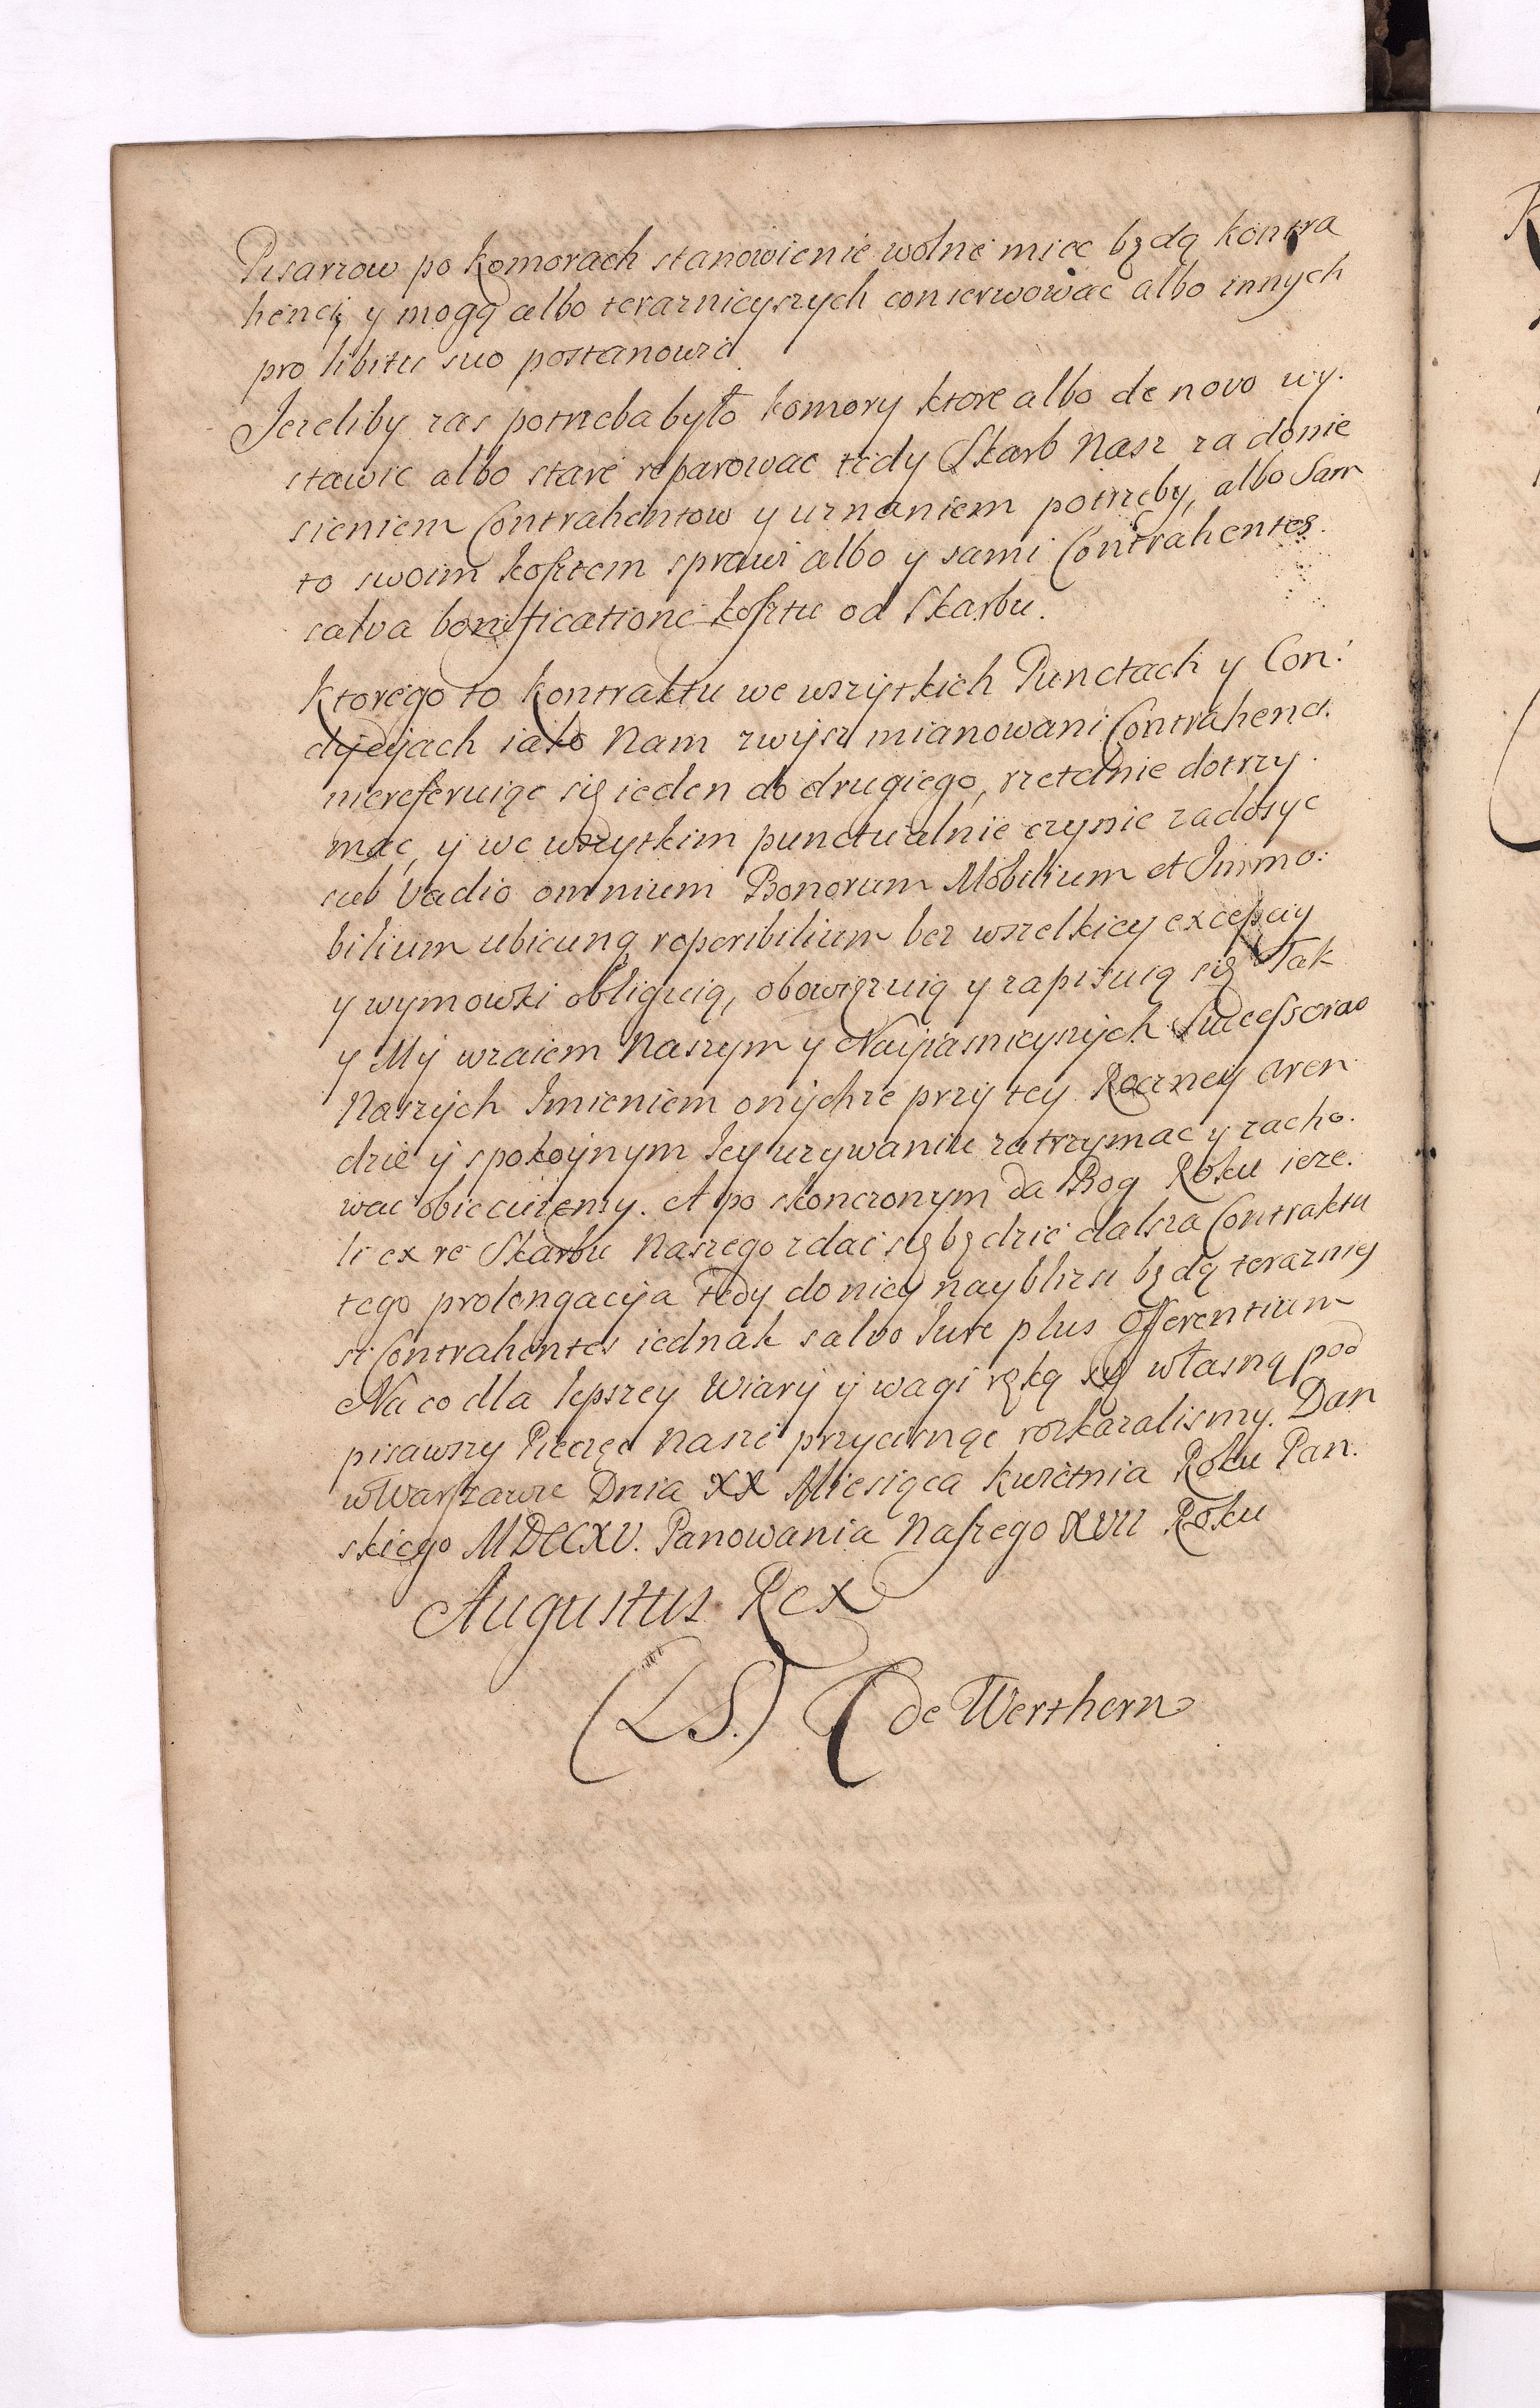 Pisarzow po komorach stanowienie wolne miec będą kontra
henci y mogą albo teraznieyszych conserwowac albo innych
pro libitu suo postanowić
Jezeliby zas potrzeba było komory ktore albo de novo wy.
stawic albo stare reparowac tedy Skarb Nasz za donie
sieniem Contrahentow y uznaniem potrzeby, albo Sam
to swoim kosztem sprawi albo y sami Contrahentes
salva bonificatione kosztu od Skarbu.
Ktorego to kontraktu we wszystkich Punctach y Con:
dycyach iako Nam zwysz mianowani Contrahenci.
niereferuiąc się ieden do drugiego, rzetelnie dotrzy
mac, y we wszytkim punctualnie czynic zadosyc
sub Vadio omnium Bonorum Mobilium et Immo:
bilium ubicunq reperibilium bez wszelkiey excepciy
y wymowki obliguią, obowiązuią y zapisuią się Tak
y My wzaiem Naszym y Naijasnieyszych Successorow
Naszych Imieniem onychze przy tey Roczney aren
dzie y spokoynym Iey uzywaniu zatrzymac y zacho.
wac obiecuiemy. A po skonczonym da Bog Roku ieze.
li ex re Skarbu Naszego zdac się będzie dalsza Contraktu
tego prolongacyia tedy do niey nayblizsi będą terazniey
si Contrahentes iednak salvo Iure plus Offerentium
Na co dla lepszey Wiary y wagi ręką się własną pod
pisawszy Pieczęć Nasze przycisnąc rozkazalismy. Dan
w Warszawie Dnia XX Miesiąca kwietnia Roku Pan.
skiego MDCCXV. Panowania Naszego XVII Roku
Augustus Rex
(L.S.) de Werthern